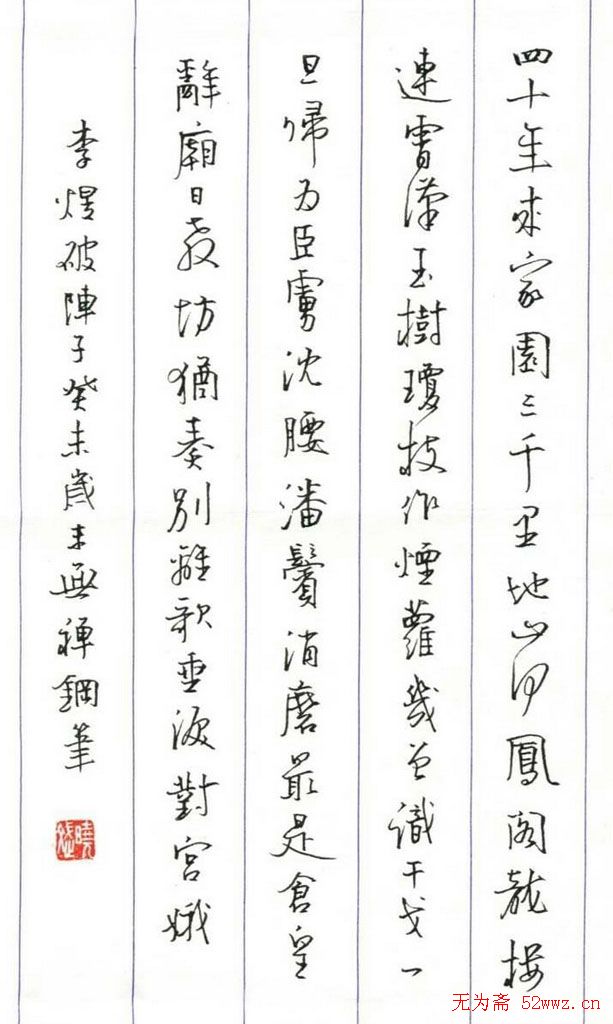 四十年來家園三千里地山河鳳閣龍樓
連霄漢玉樹瓊枝作煙蘿幾曾識干戈一
旦歸為臣虜沈腰潘鬢消磨最是倉皇
辭廟日教坊猶奏別離歌垂淚對宮娥
李煜破陣子癸未歲末無禅鋼筆
无为斋 52wwz.cn